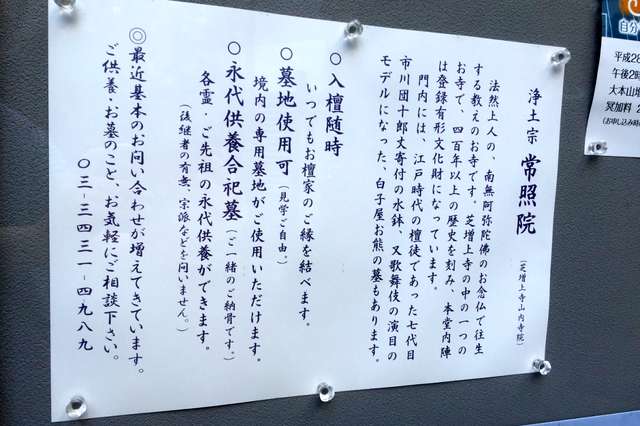 浄土宗 常照院 (芝増上寺山内寺院)
法然上人の、南無阿弥陀佛のお念仏で往生
する教えのお寺です。芝増上寺の中の一つの
お寺で、四百年以上の歴史を刻み、本堂内陣
は登録有形文化財になっています。
門内には、江戸時代の檀徒であった七代目
市川団十郎丈寄付の水鉢、又歌舞伎の演目の
モデルになった、白子屋お熊の墓もあります。
○入檀随時
いつでもお檀家のご縁を結べます。
○墓地使用可(見学ご自由。)
境内の専用墓地がご使用いただけます。
○永代供養合祀墓(ご一緒のご納骨です。)
各霊・ご先祖の永代供養ができます。
(後継者の有無、宗派などを問いません。)
◎最近墓本のお問い合わせが増えてきています。
ご供養・お墓のこと、お気軽にご相談下さい。
〇三-三四三一-四九八九
自分
平成2
午後2時
大本山増
冥加料
(お申し込み時